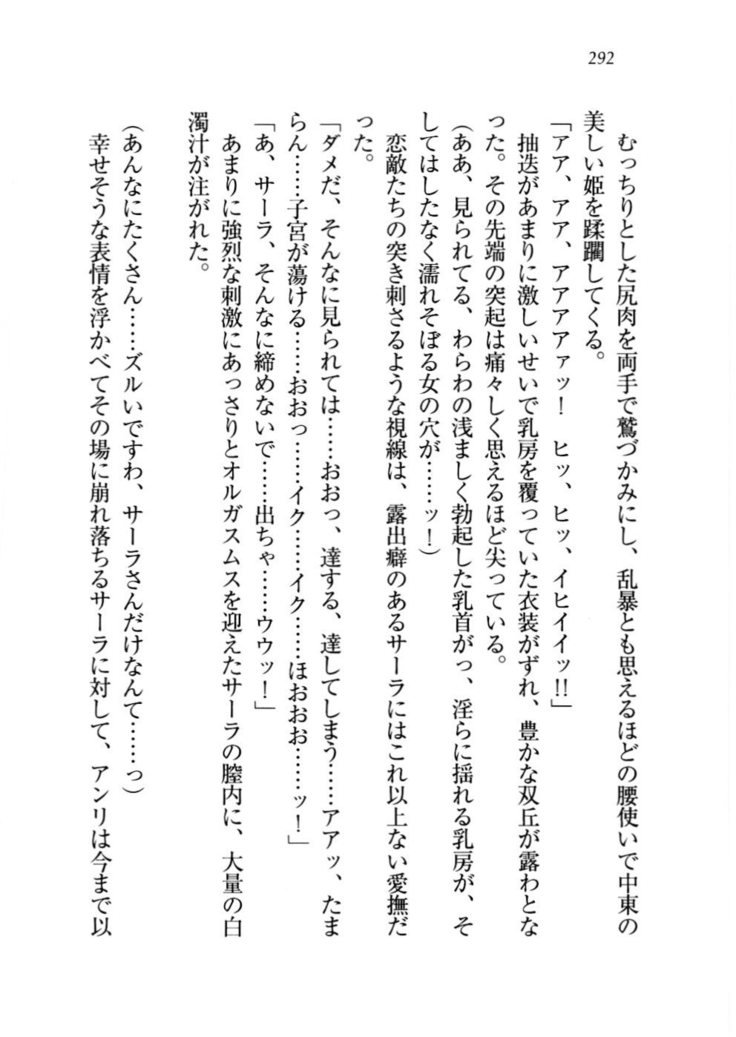 292
むっちりとした尻肉を両手で鷲づかみにし、乱暴とも思えるほどの腰使いで中東の
美しい姫を蹂躙してくる。
「アア、アア、アアアァッ！　ヒッ、ヒッ、イヒイイッ!!」
抽迭があまりに激しいせいで乳房を覆っていた衣装がずれ、豊かな双丘が露わとな
った。その先端の突起は痛々しく思えるほど尖っている。
（ああ、見られてる、わらわの浅ましく勃起した乳首がっ、淫らに揺れる乳房が、そ
してはしたなく濡れそぼる女の穴が……ッ！）
恋敵たちの突き刺さるような視線は、露出癖のあるサーラにはこれ以上ない愛撫だ
った。
「ダメだ、そんなに見られては……おおっ、達する、達してしまう……アアッ、たま
らん……子宮が蕩ける……おおっ……イク……イク……ほおおお……ッ！」
「あ、サーラ、そんなに締めないで……出ちゃ……ウウッ！」
あまりに強烈な刺激にあっさりとオルガスムスを迎えたサーラの膣内に、大量の白
濁汁が注がれた。
（あんなにたくさん……ズルいですわ、サーラさんだけなんて……っ）
幸せそうな表情を浮かべてその場に崩れ落ちるサーラに対して、アンリは今まで以